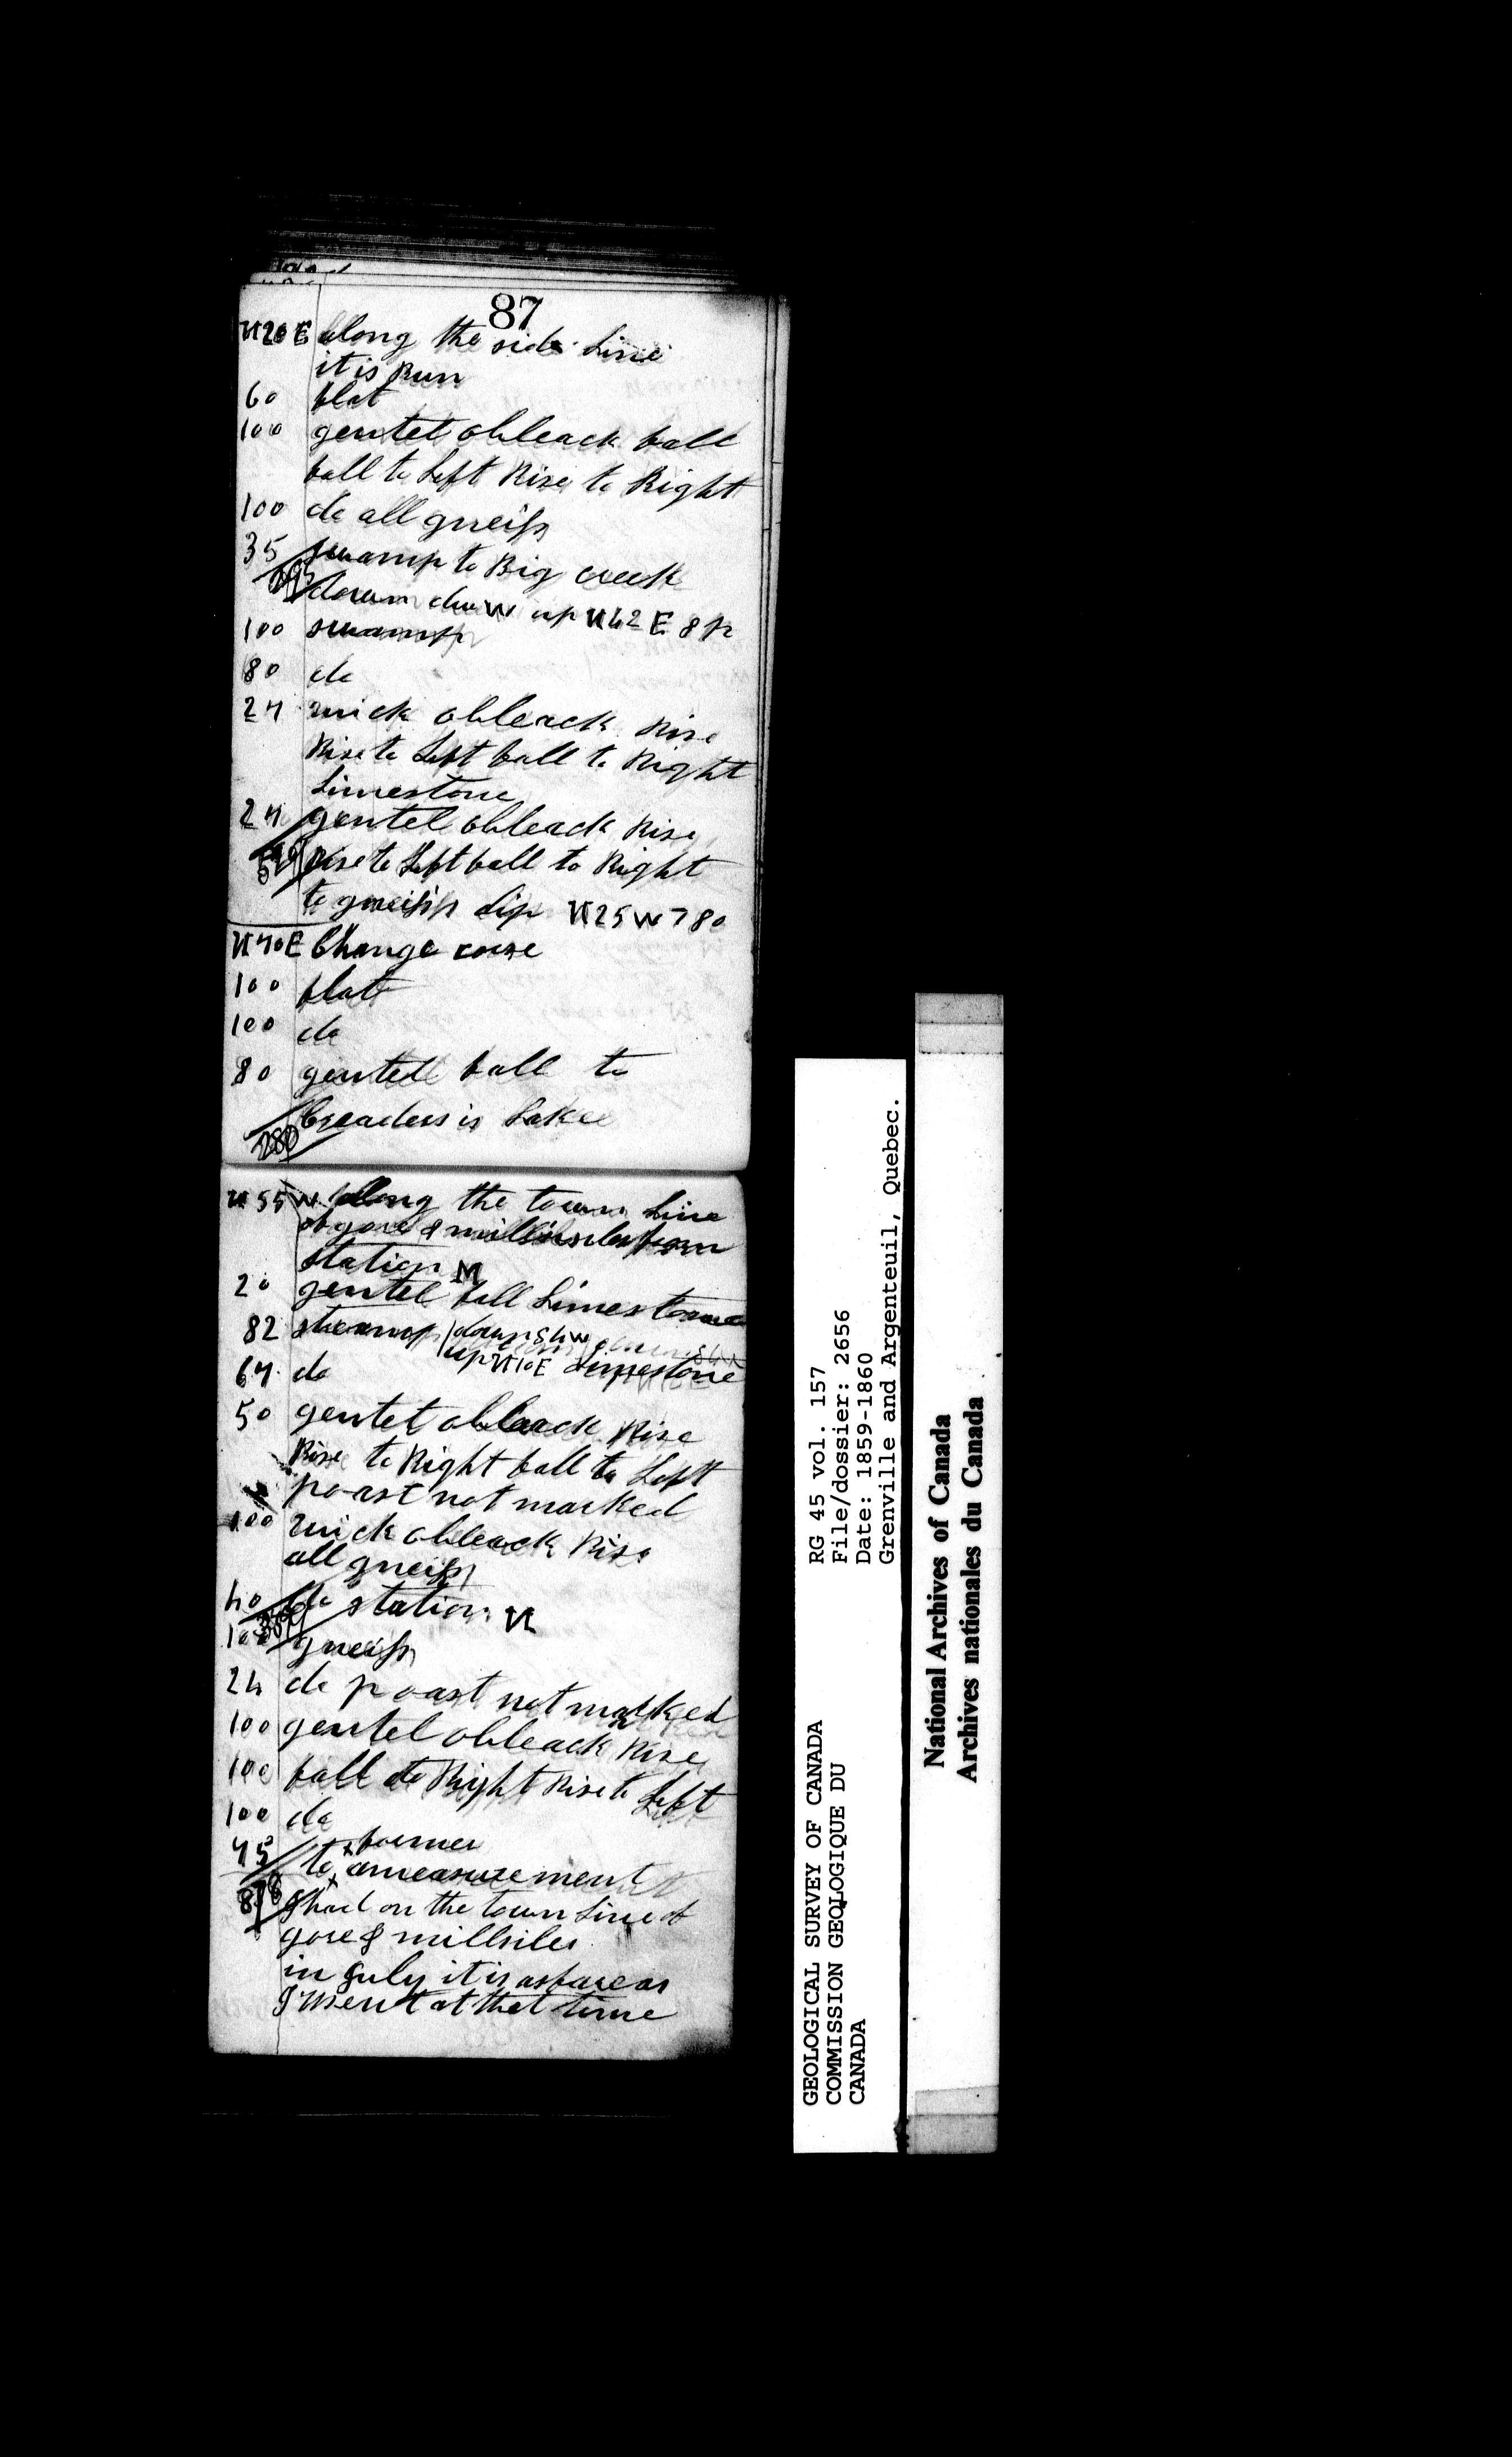 87
N20E along the side Line
it is Run
60 flat
100 gentel obleack fall
fall to Left Rise to Right
100 do all gneiss
35 swamp to Big creek
down due W up N42E 8 p
100 swamp
80 do
27 quick obleack Rise
Rise to Left fall to Right
Limestone
27 gentel obleack Rise
Rise to Left fall to Right
to gneiss dip N25W 780
N70E Change corse
100 flat
100 do
80 gentell fall to
280 is Lake
N55W along the town Line
of gore & from
station M
20 gentel fall Limestone
82 swamp down
up N10E Limestone
67 do
50 gentel obleack Rise
Rise to Right fall to Left
poast not marked
100 quick obleack Rise
all gneiss
40 do station N
100 gneiss
24 do poast not marked
100 gentel obleack Rise
100 fall to Right Rise to Left
100 do
former
75 to a measurement
I had on the town Line of
gore & millsiles
in July it is as fare as
I went at that time
GEOLOGICAL SURVEY OF CANADA
COMMISSION GEOLOGIQUE DU
CANADA
RG 45 vol. 157
File/dossier: 2656
Date: 1859-1860
Grenville and Argenteuil, Quebec.
National Archives of Canada
Archives nationales du Canada